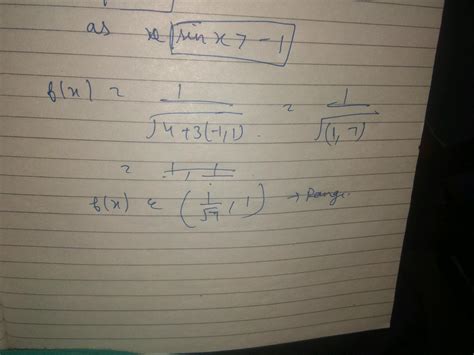 as sinx > -1
f(x) = 1/√4+3(-1,1) = 1/√(1,7)
= 1, 1
f(x) ε (1/√7, 1) → Range